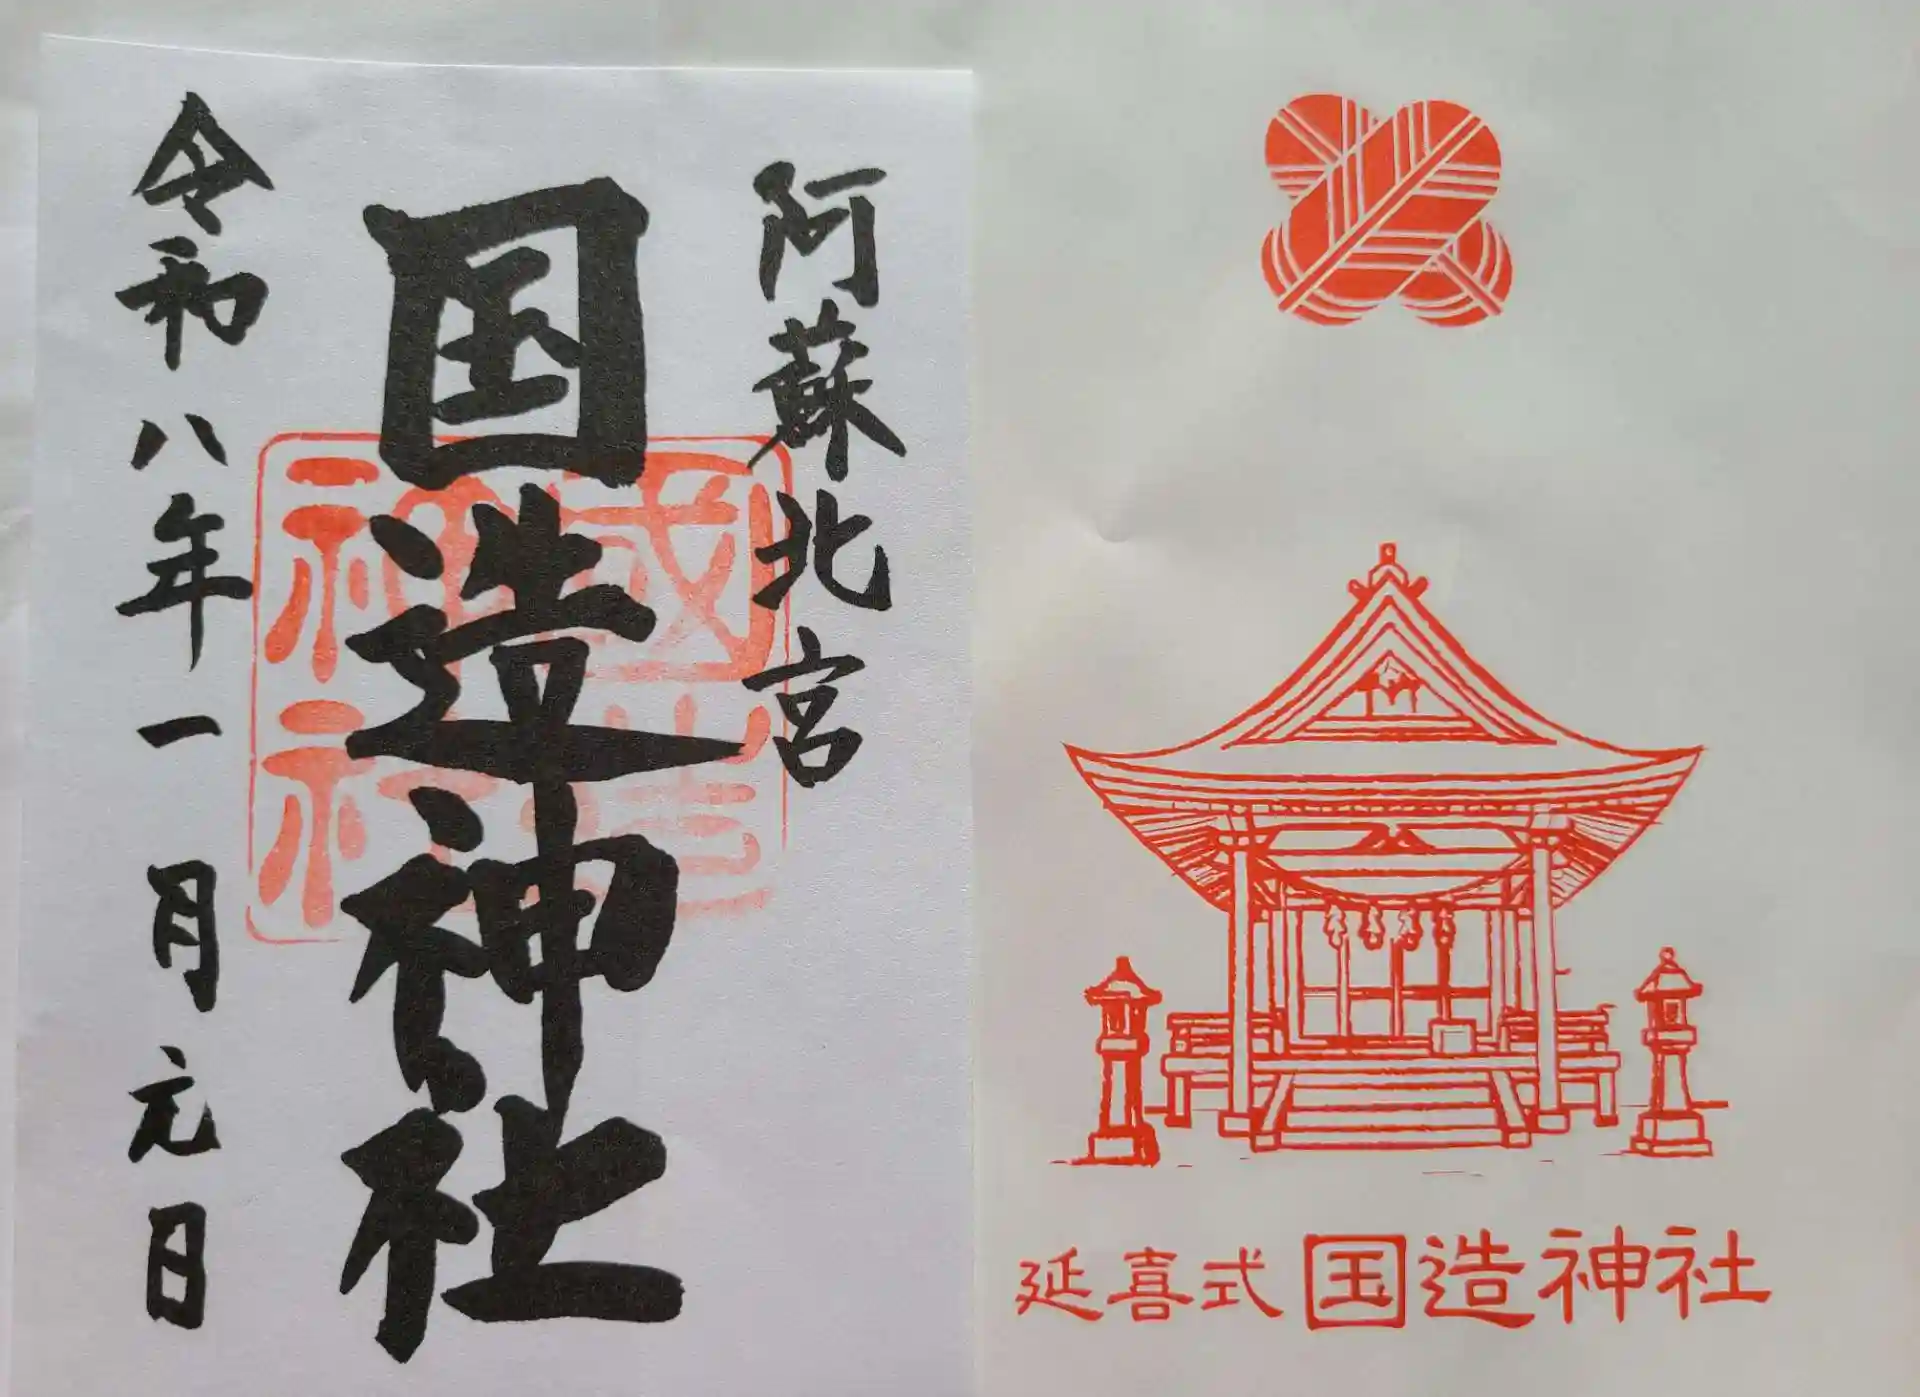 阿蘇北宮
国造神社
令和八年一月元日
國造
神社
延喜式 国造神社